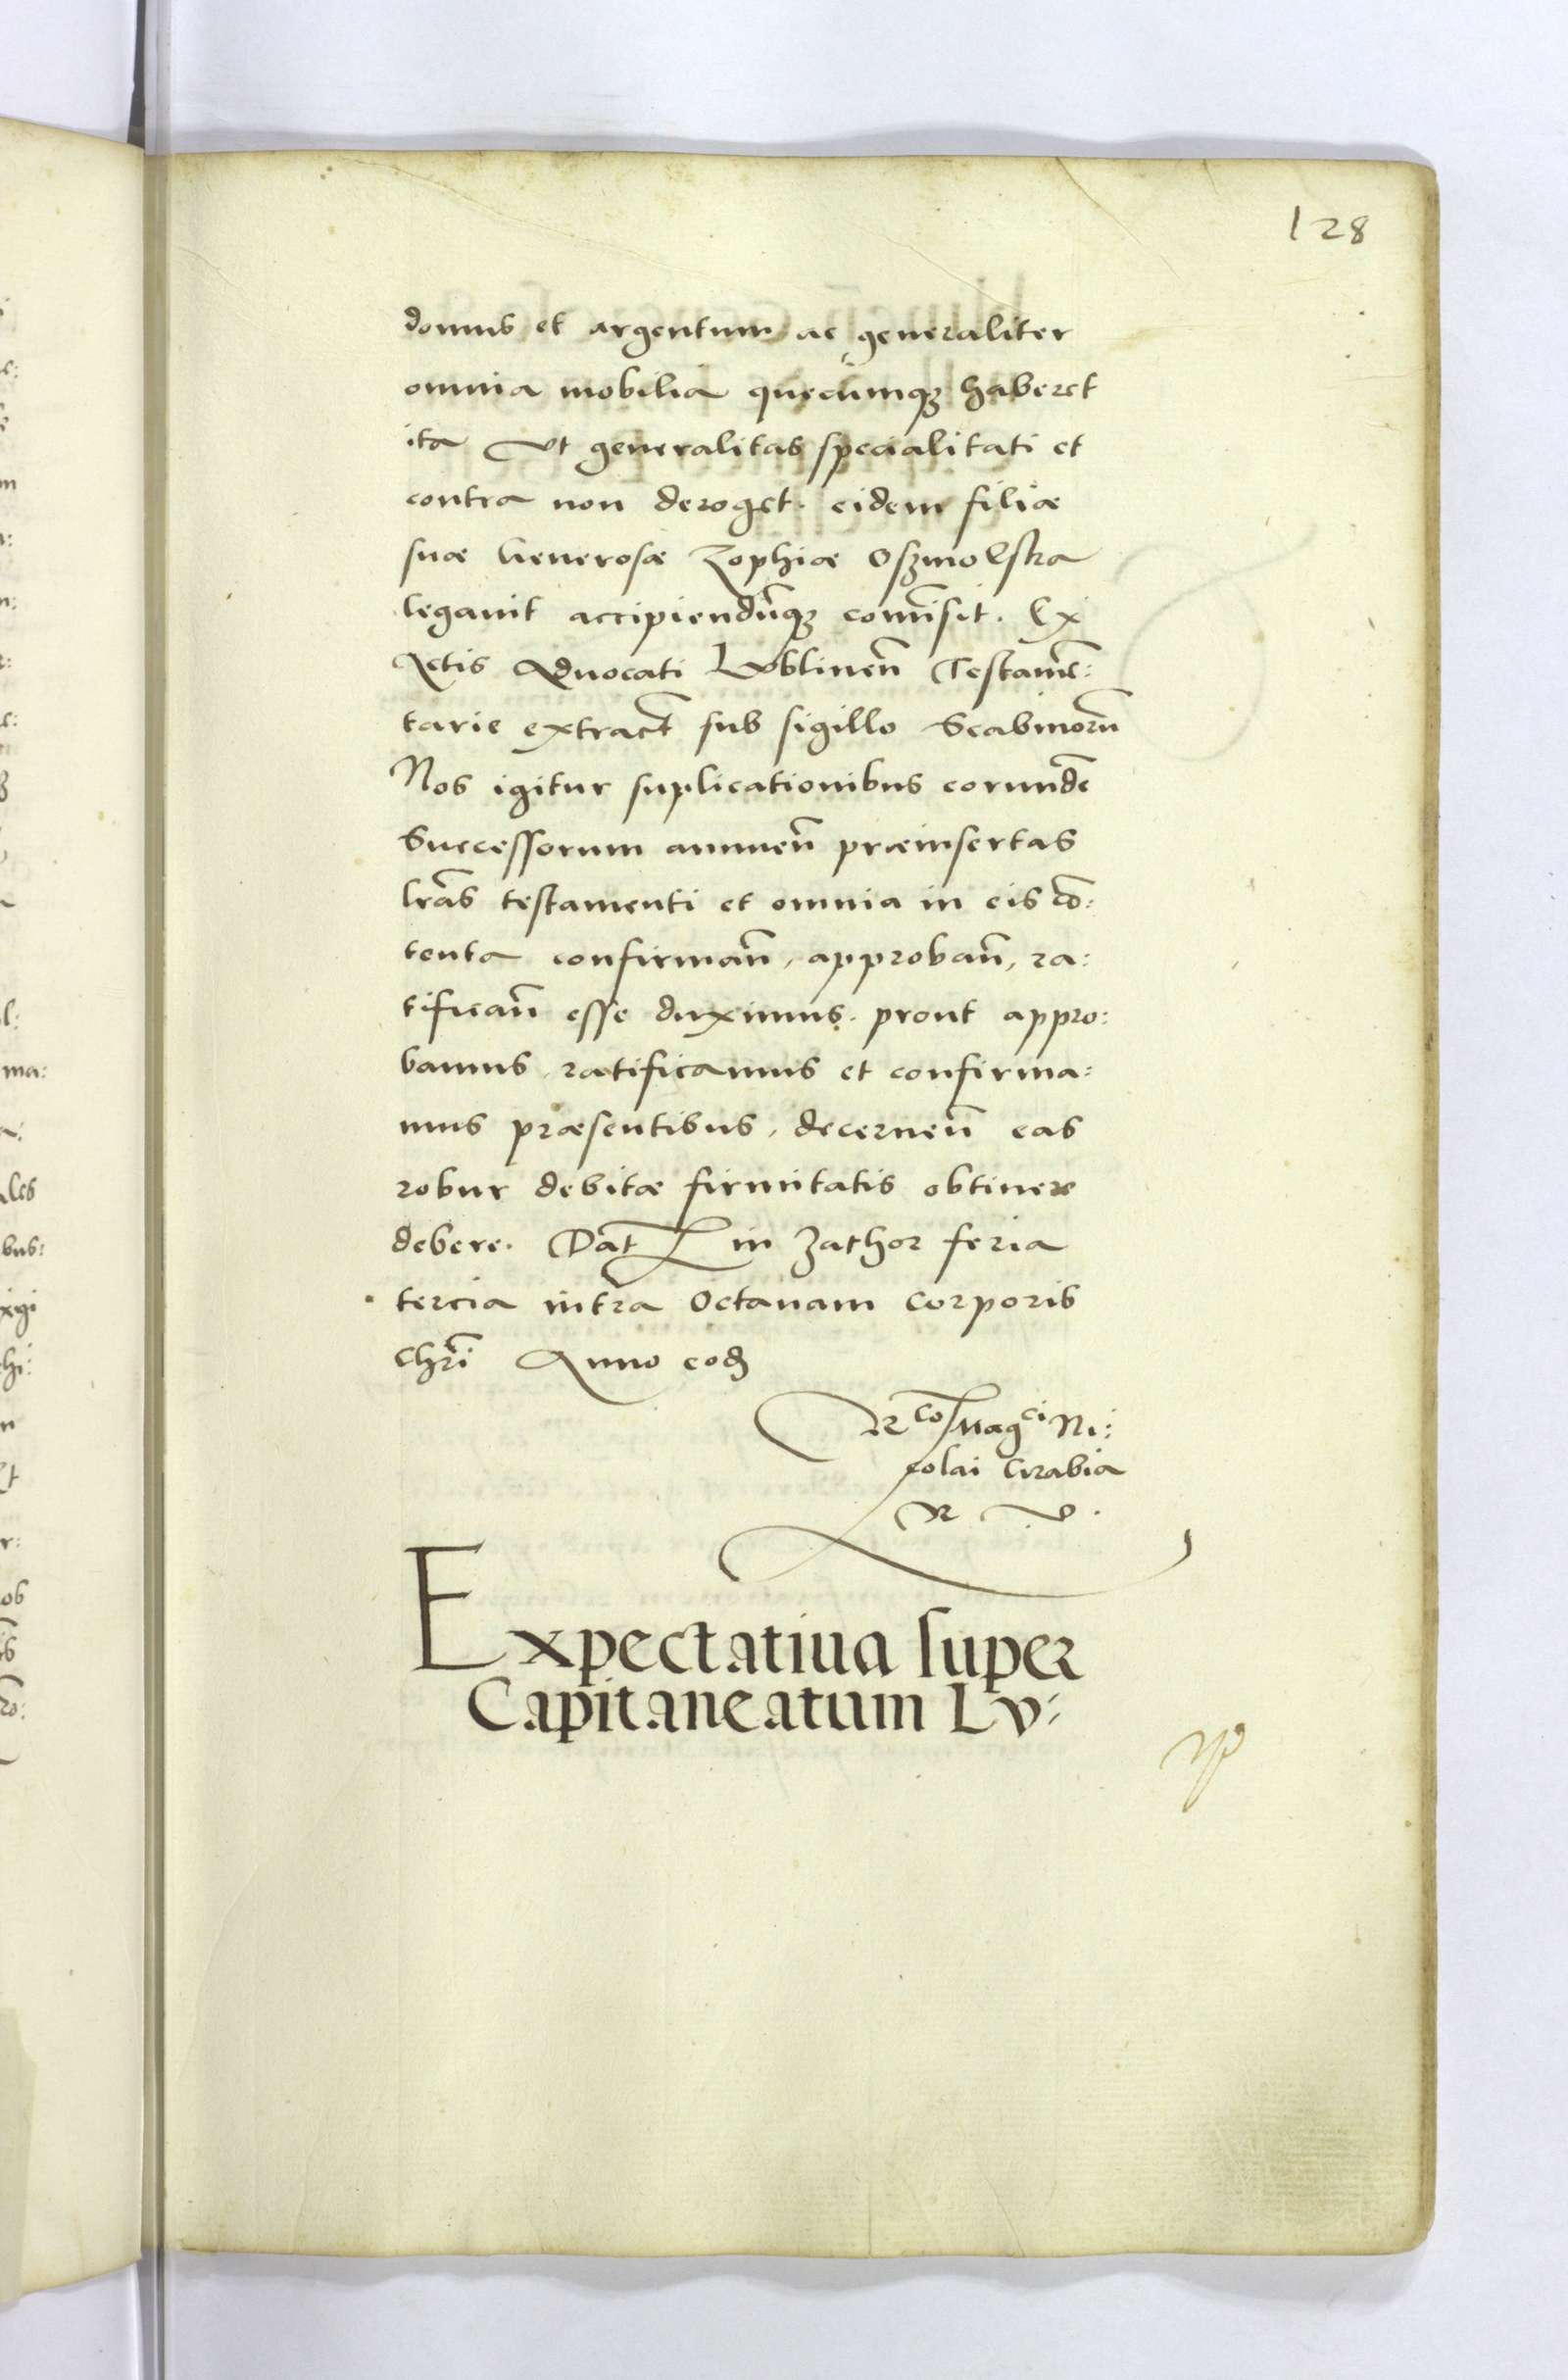 128
domus et argentum ac generaliter
omnia mobilia quecumqꝫ haberet
ita Vt generalitas specialitati et
contra non deroget. eidem filiæ
suæ Generosæ Zophiæ Oszmolska
legauit accipiendūqꝫ com̄isit. Ex
Actis Aduocati Lvblineñ Testamē:
tarie extract̄ sub sigillo Scabinorū
Nos igitur suplicationibus eorundē
Successorum annueñ præinsertas
lr̄as testamenti et omnia in eis cō:
tenta confirmañ, approbañ, ra:
tificañ esse duximus. prout appro:
bamus, ratificamus et confirma:
mus præsentibus, decerneñ eas
robur debitæ firmitatis obtinere
debere. Dat̄ in Zathor feria
tercia intra Octauam Corporis
Chrī Anno eod
Rco Magci Ni:
colai Grabia
R V.
Expectatiua super
Capitaneatum Lv: